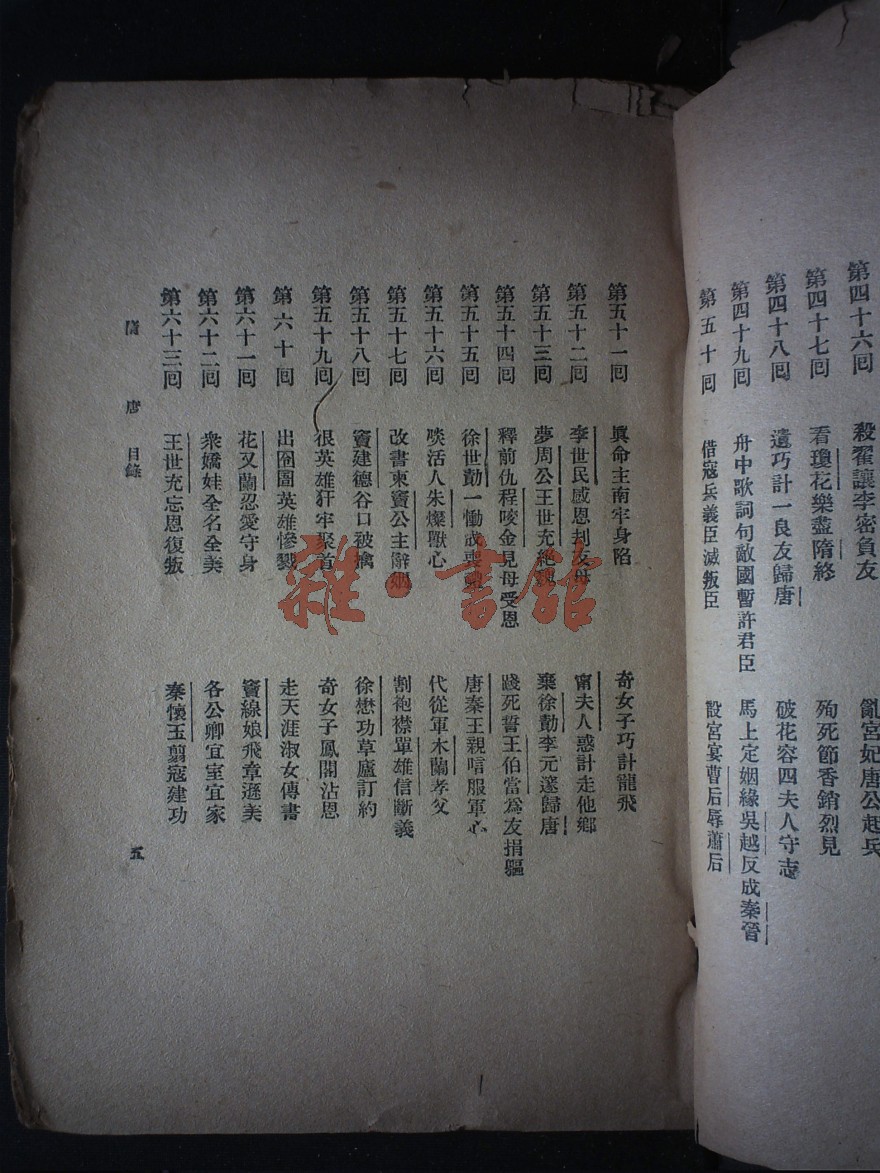 第四十六回　殺翟讓李密負友　亂宮妃唐公起兵
第四十七回　看瓊花樂盡隋終　殉死節香銷烈見
第四十八回　遺巧計一良友歸唐　破花容四夫人守志
第四十九回　舟中歌詞句敵國暫許君臣　馬上定姻緣吳越反成秦晉
第五十回　借寇兵義臣滅叛臣　設宮宴曹后辱蕭后
第五十一回　眞命主南牢身陷　奇女子巧計龍飛
第五十二回　李世民感恩刦友母　甯夫人惑計走他鄉
第五十三回　夢周公王世充絕魏　棄徐勣李元邃歸唐
第五十四回　釋前仇程咬金見母受恩　踐死誓王伯當爲友捐軀
第五十五回　徐世勣一慟成喪禮　唐秦王親唁服軍心
第五十六回　啖活人朱燦獸心　代從軍木蘭孝父
第五十七回　改書柬竇公主辭姻　割袍襟單雄信斷義
第五十八回　竇建德谷口被擒　徐懋功草廬訂約
第五十九回　很英雄犴牢聚首　奇女子鳳閣沾恩
第六十回　出囹圄英雄慘戮　走天涯淑女傳書
第六十一回　花又蘭忍愛守身　竇線娘飛章遜美
第六十二回　衆嬌娃全名全美　各公卿宜室宜家
第六十三回　王世充忘恩復叛　秦懷玉翦寇建功
隋　唐　目錄　五
雜·書館